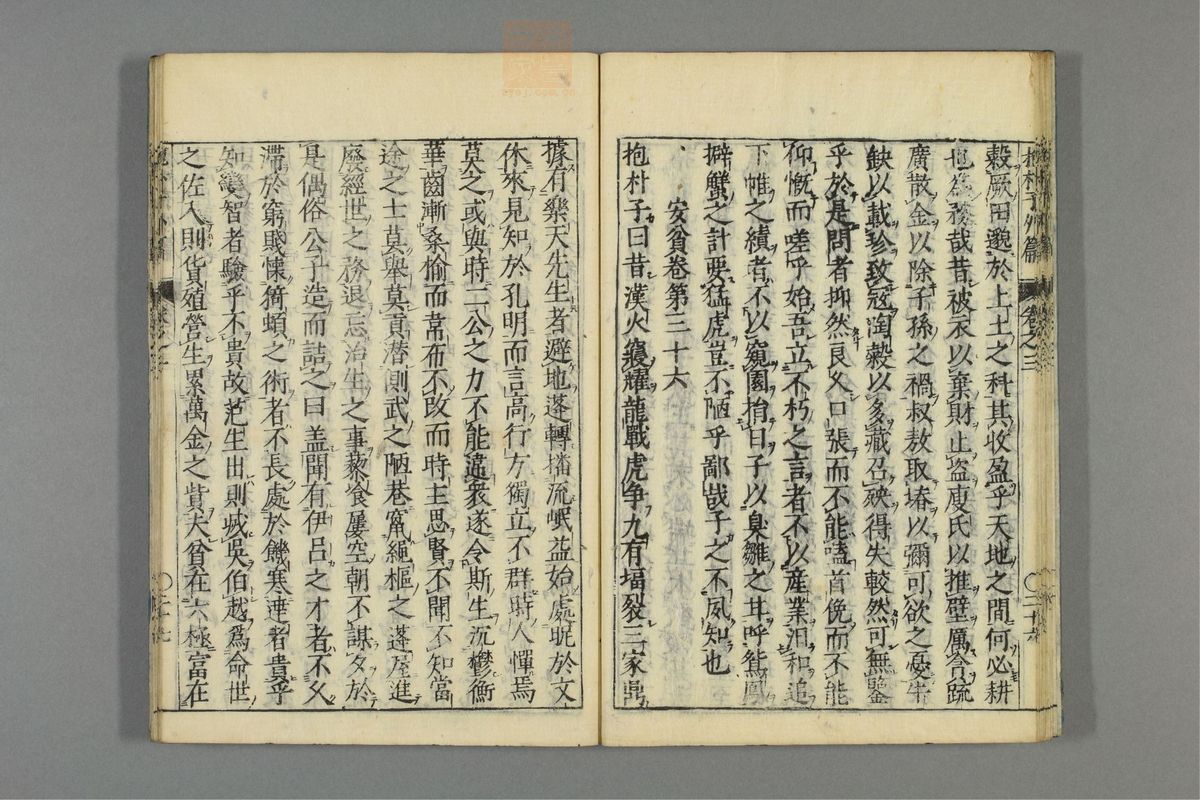 穀厥田邈於上土之科其收盈乎天地之間何必耕
也為務哉昔被衣以棄財止盜庾氏以推璧厲含䟽
廣散金以除子孫之禍叔敖取塉以彌可欲之憂牛
缺以載珍致寇淘穀以多藏召殃得失較然可無鑒
乎於是問者抑然良久口張而不能嗑首俛而不能
仰慨而嗟乎始吾立不朽之言者不以産業汨和追
下帷之績者不以窺園捐日子以臭雛之甘呼鴛鳳
擗蟹之計要猛虎豈不陋乎鄙哉子之不夙知也
安貧卷第三十六
抱朴子曰昔漢火寢耀龍戰虎争九有堛裂三家鼎
據有樂天先生者避地蓬轉播流岷益始處昵於文
休來見知於孔明而言高行方獨立不群時人憚焉
莫之或與時二公之力不能違衆遂令斯生沉鬱衡
華齒漸桑榆而常布不改而時主思賢不聞不知當
途之士莫舉莫貢潛則武之陋巷竄繩樞之蓬屋進
廢經世之務退忘治生之事藜飡屢空朝不謀夕於
是偶俗公子造而詰之曰盖聞有伊呂之才者不久
滯於窮賤懐猗頓之術者不長處於饑寒達者貴乎
知變智者驗乎不貴故范生出則㓕吳伯越爲命世
之佐入則貨殖營生累萬金之貲夫貧在六極富在
抱朴子外篇
卷之三
○二十六